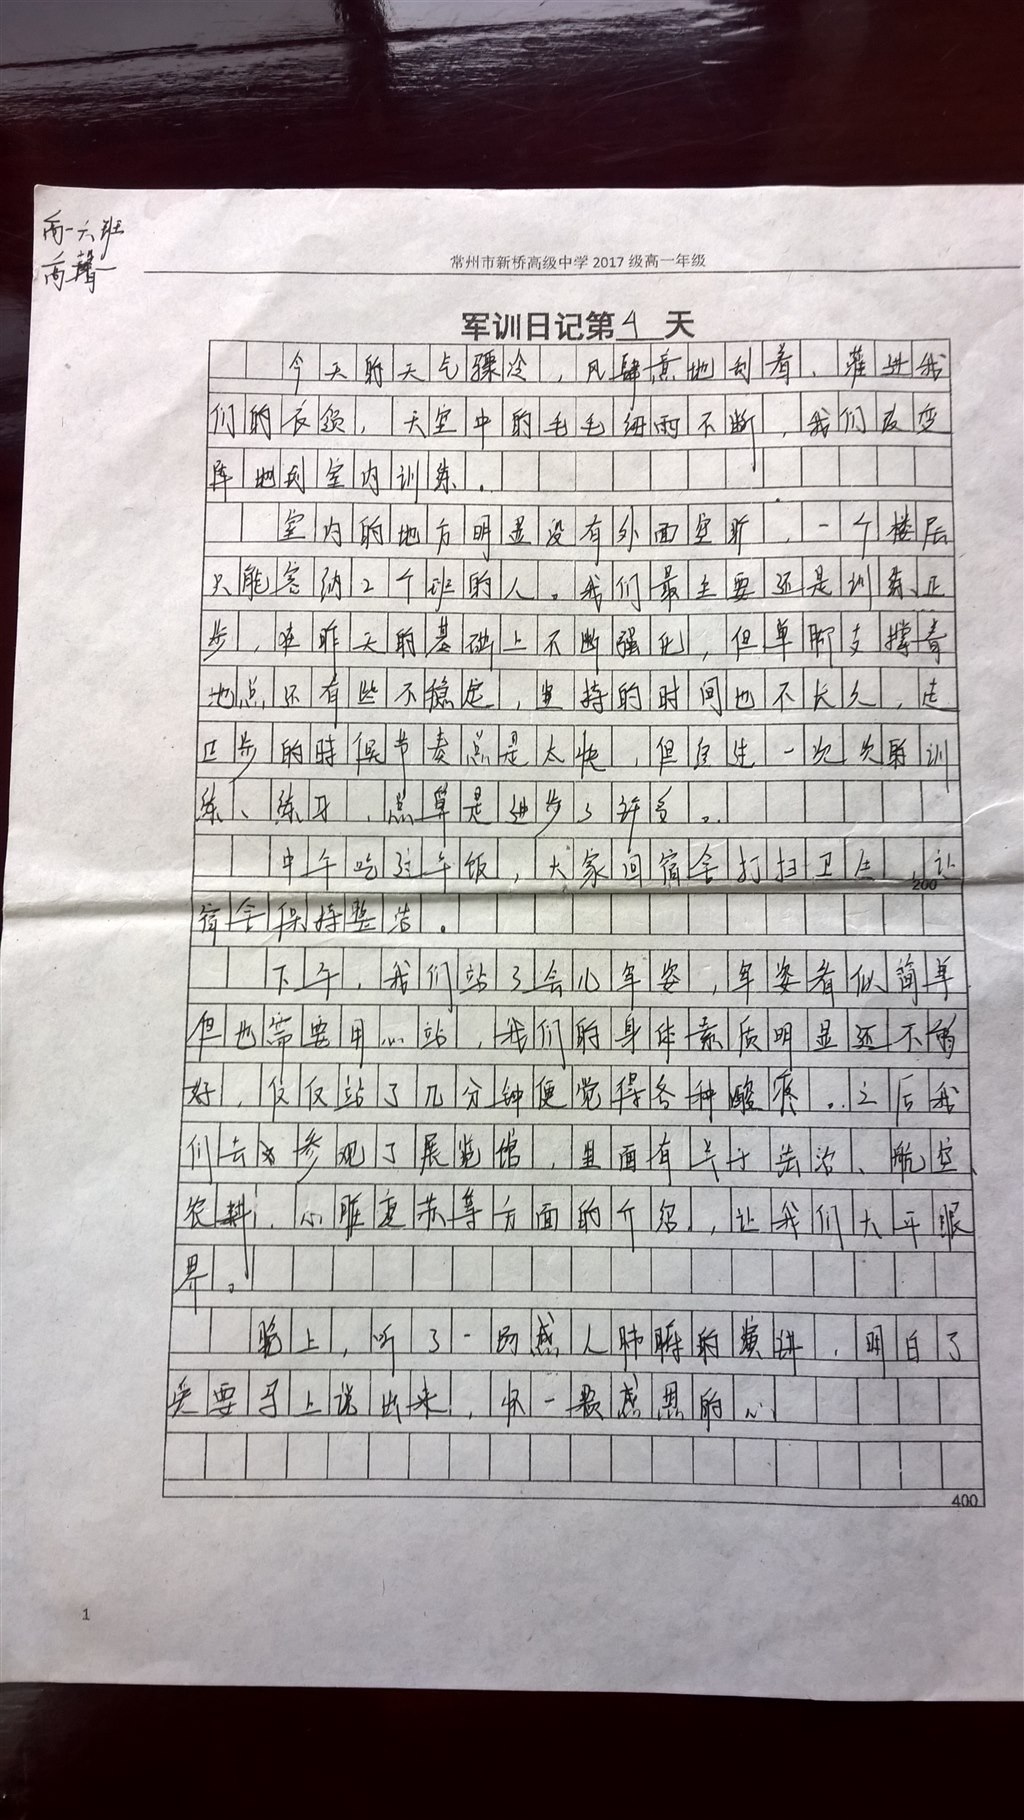 高一六班
高
常州市新桥高级中学 2017 级高一年级
军训日记第 4 天
今天的天气骤冷，风肆意地刮着、灌进我
们的衣领，天空中的毛毛细雨不断，我们改变
阵地到室内训练。
室内的地方明显没有外面空旷，一个楼层
只能容纳2个班的人。我们最主要还是训练正
步，在昨天的基础上不断强化，但单脚支撑着
地点还有些不稳定，坚持的时间也不长久，走
正步的時候节奏总是太快，但自在一次次的训
练、练习，总算是进步了许多。
中午吃过午饭，大家回宿舍打扫卫生，让
200
宿舍保持整洁。
下午，我们站了会儿军姿，军姿看似简单
但也需要用心站，我们的身体素质明显还不够
好，仅仅站了几分钟便觉得各种酸疼。之后我
们去参观了展览馆，里面有关于法治、航空、
农耕、心脏复苏等方面的介绍，让我们大开眼
界。
晚上，听了一场感人肺腑的演讲，明白了
爱要马上说出来，怀一颗感恩的心
400
1